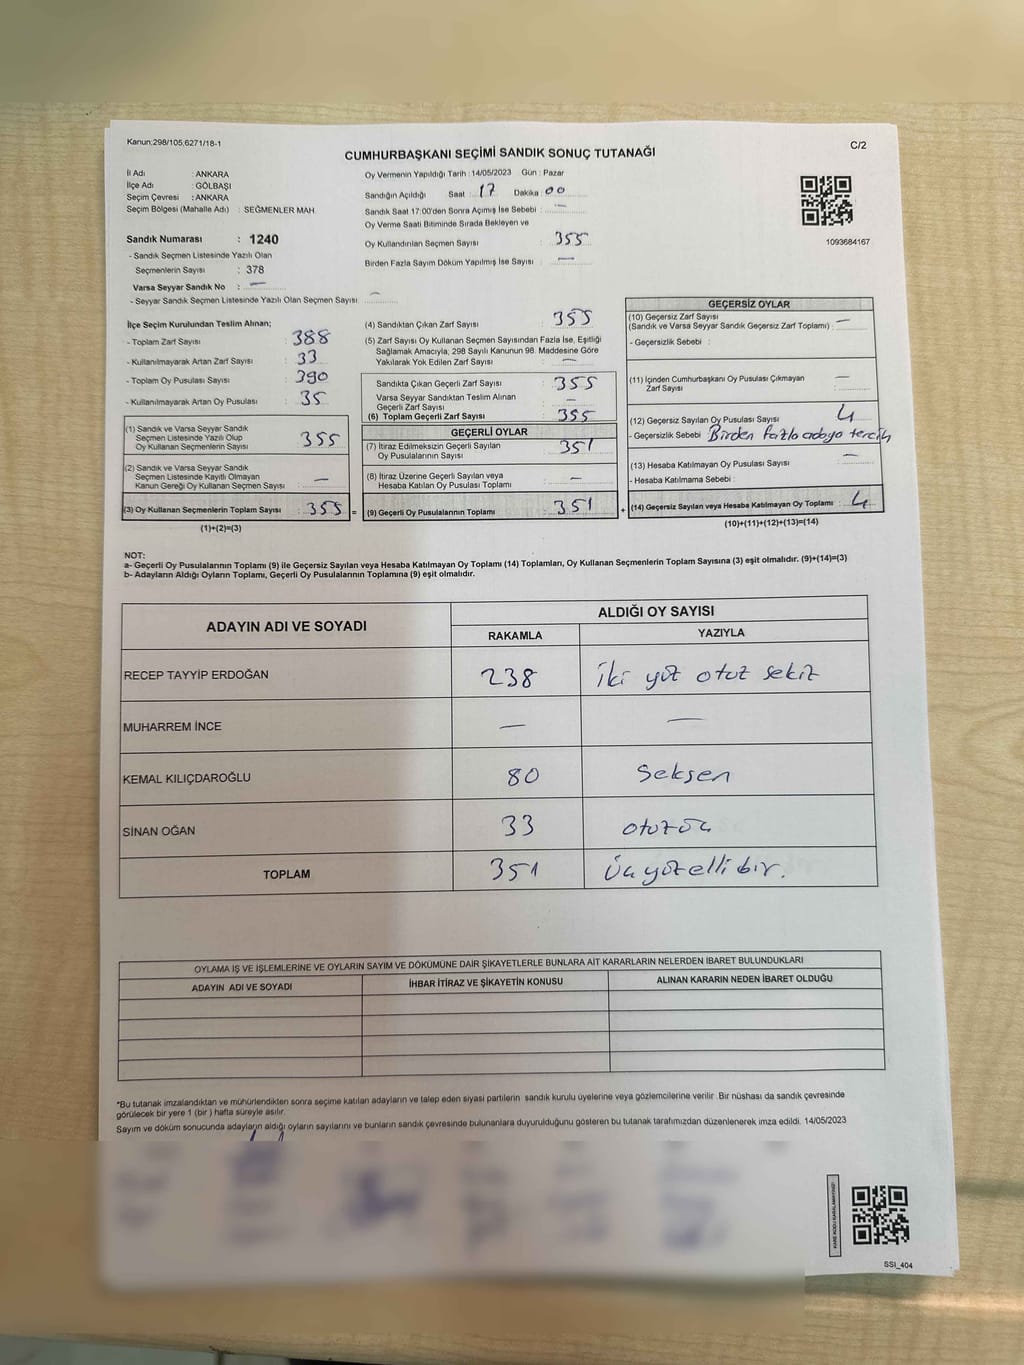 Kanun:298/105,6271/18-1
C/2
CUMHURBAŞKANI SEÇİMİ SANDIK SONUÇ TUTANAĞI
İl Adı : ANKARA
İlçe Adı : GÖLBAŞI
Seçim Çevresi : ANKARA
Seçim Bölgesi (Mahalle Adı) : SEĞMENLER MAH.
Sandık Numarası : 1240
- Sandık Seçmen Listesinde Yazılı Olan
Seçmenlerin Sayısı : 378
Varsa Seyyar Sandık No : —
- Seyyar Sandık Seçmen Listesinde Yazılı Olan Seçmen Sayısı : —
Oy Vermenin Yapıldığı Tarih : 14/05/2023 Gün : Pazar
Sandığın Açıldığı Saat : 17 Dakika : 00
Sandık Saat 17:00'den Sonra Açımış İse Sebebi : —
Oy Verme Saati Bitiminde Sırada Bekleyen ve
Oy Kullandırılan Seçmen Sayısı : 355
Birden Fazla Sayım Döküm Yapılmış İse Sayısı : —
1093684167
İlçe Seçim Kurulundan Teslim Alınan;
- Toplam Zarf Sayısı : 388
- Kullanılmayarak Artan Zarf Sayısı : 33
- Toplam Oy Pusulası Sayısı : 390
- Kullanılmayarak Artan Oy Pusulası : 35
(1) Sandık ve Varsa Seyyar Sandık
Seçmen Listesinde Yazılı Olup
Oy Kullanan Seçmenlerin Sayısı : 355
(2) Sandık ve Varsa Seyyar Sandık
Seçmen Listesinde Kayıtlı Olmayan
Kanun Gereği Oy Kullanan Seçmen Sayısı : —
(3) Oy Kullanan Seçmenlerin Toplam Sayısı : 355 =
(1)+(2)=(3)
(4) Sandıktan Çıkan Zarf Sayısı : 355
(5) Zarf Sayısı Oy Kullanan Seçmen Sayısından Fazla İse, Eşitliği
Sağlamak Amacıyla, 298 Sayılı Kanunun 98. Maddesine Göre
Yakılarak Yok Edilen Zarf Sayısı : —
Sandıkta Çıkan Geçerli Zarf Sayısı : 355
Varsa Seyyar Sandıktan Teslim Alınan
Geçerli Zarf Sayısı : —
(6) Toplam Geçerli Zarf Sayısı : 355
GEÇERLİ OYLAR
(7) İtiraz Edilmeksizin Geçerli Sayılan
Oy Pusulalarının Sayısı : 351
(8) İtiraz Üzerine Geçerli Sayılan veya
Hesaba Katılan Oy Pusulası Toplamı : —
(9) Geçerli Oy Pusulalarının Toplamı : 351 +
GEÇERSİZ OYLAR
(10) Geçersiz Zarf Sayısı
(Sandık ve Varsa Seyyar Sandık Geçersiz Zarf Toplamı) : —
- Geçersizlik Sebebi :
(11) İçinden Cumhurbaşkanı Oy Pusulası Çıkmayan
Zarf Sayısı : —
(12) Geçersiz Sayılan Oy Pusulası Sayısı : 4
- Geçersizlik Sebebi : Birden fazla adaya tercih
(13) Hesaba Katılmayan Oy Pusulası Sayısı : —
- Hesaba Katılmama Sebebi :
(14) Geçersiz Sayılan veya Hesaba Katılmayan Oy Toplamı : 4
(10)+(11)+(12)+(13)=(14)
NOT:
a- Geçerli Oy Pusulalarının Toplamı (9) ile Geçersiz Sayılan veya Hesaba Katılmayan Oy Toplamı (14) Toplamları, Oy Kullanan Seçmenlerin Toplam Sayısına (3) eşit olmalıdır. (9)+(14)=(3)
b- Adayların Aldığı Oyların Toplamı, Geçerli Oy Pusulalarının Toplamına (9) eşit olmalıdır.
ADAYIN ADI VE SOYADI ALDIĞI OY SAYISI
RAKAMLA YAZIYLA
RECEP TAYYİP ERDOĞAN 238 iki yüz otuz sekiz
MUHARREM İNCE — —
KEMAL KILIÇDAROĞLU 80 Seksen
SİNAN OĞAN 33 otuzüç
TOPLAM 351 Üçyüzellibir.
OYLAMA İŞ VE İŞLEMLERİNE VE OYLARIN SAYIM VE DÖKÜMÜNE DAİR ŞİKAYETLERLE BUNLARA AİT KARARLARIN NELERDEN İBARET BULUNDUKLARI
ADAYIN ADI VE SOYADI İHBAR İTİRAZ VE ŞİKAYETİN KONUSU ALINAN KARARIN NEDEN İBARET OLDUĞU
*Bu tutanak imzalandıktan ve mühürlendikten sonra seçime katılan adayların ve talep eden siyasi partilerin sandık kurulu üyelerine veya gözlemcilerine verilir. Bir nüshası da sandık çevresinde
görülecek bir yere 1 (bir) hafta süreyle asılır.
Sayım ve döküm sonucunda adayların aldığı oyların sayılarını ve bunların sandık çevresinde bulunanlara duyurulduğunu gösteren bu tutanak tarafımızdan düzenlenerek imza edildi. 14/05/2023
SSI_404